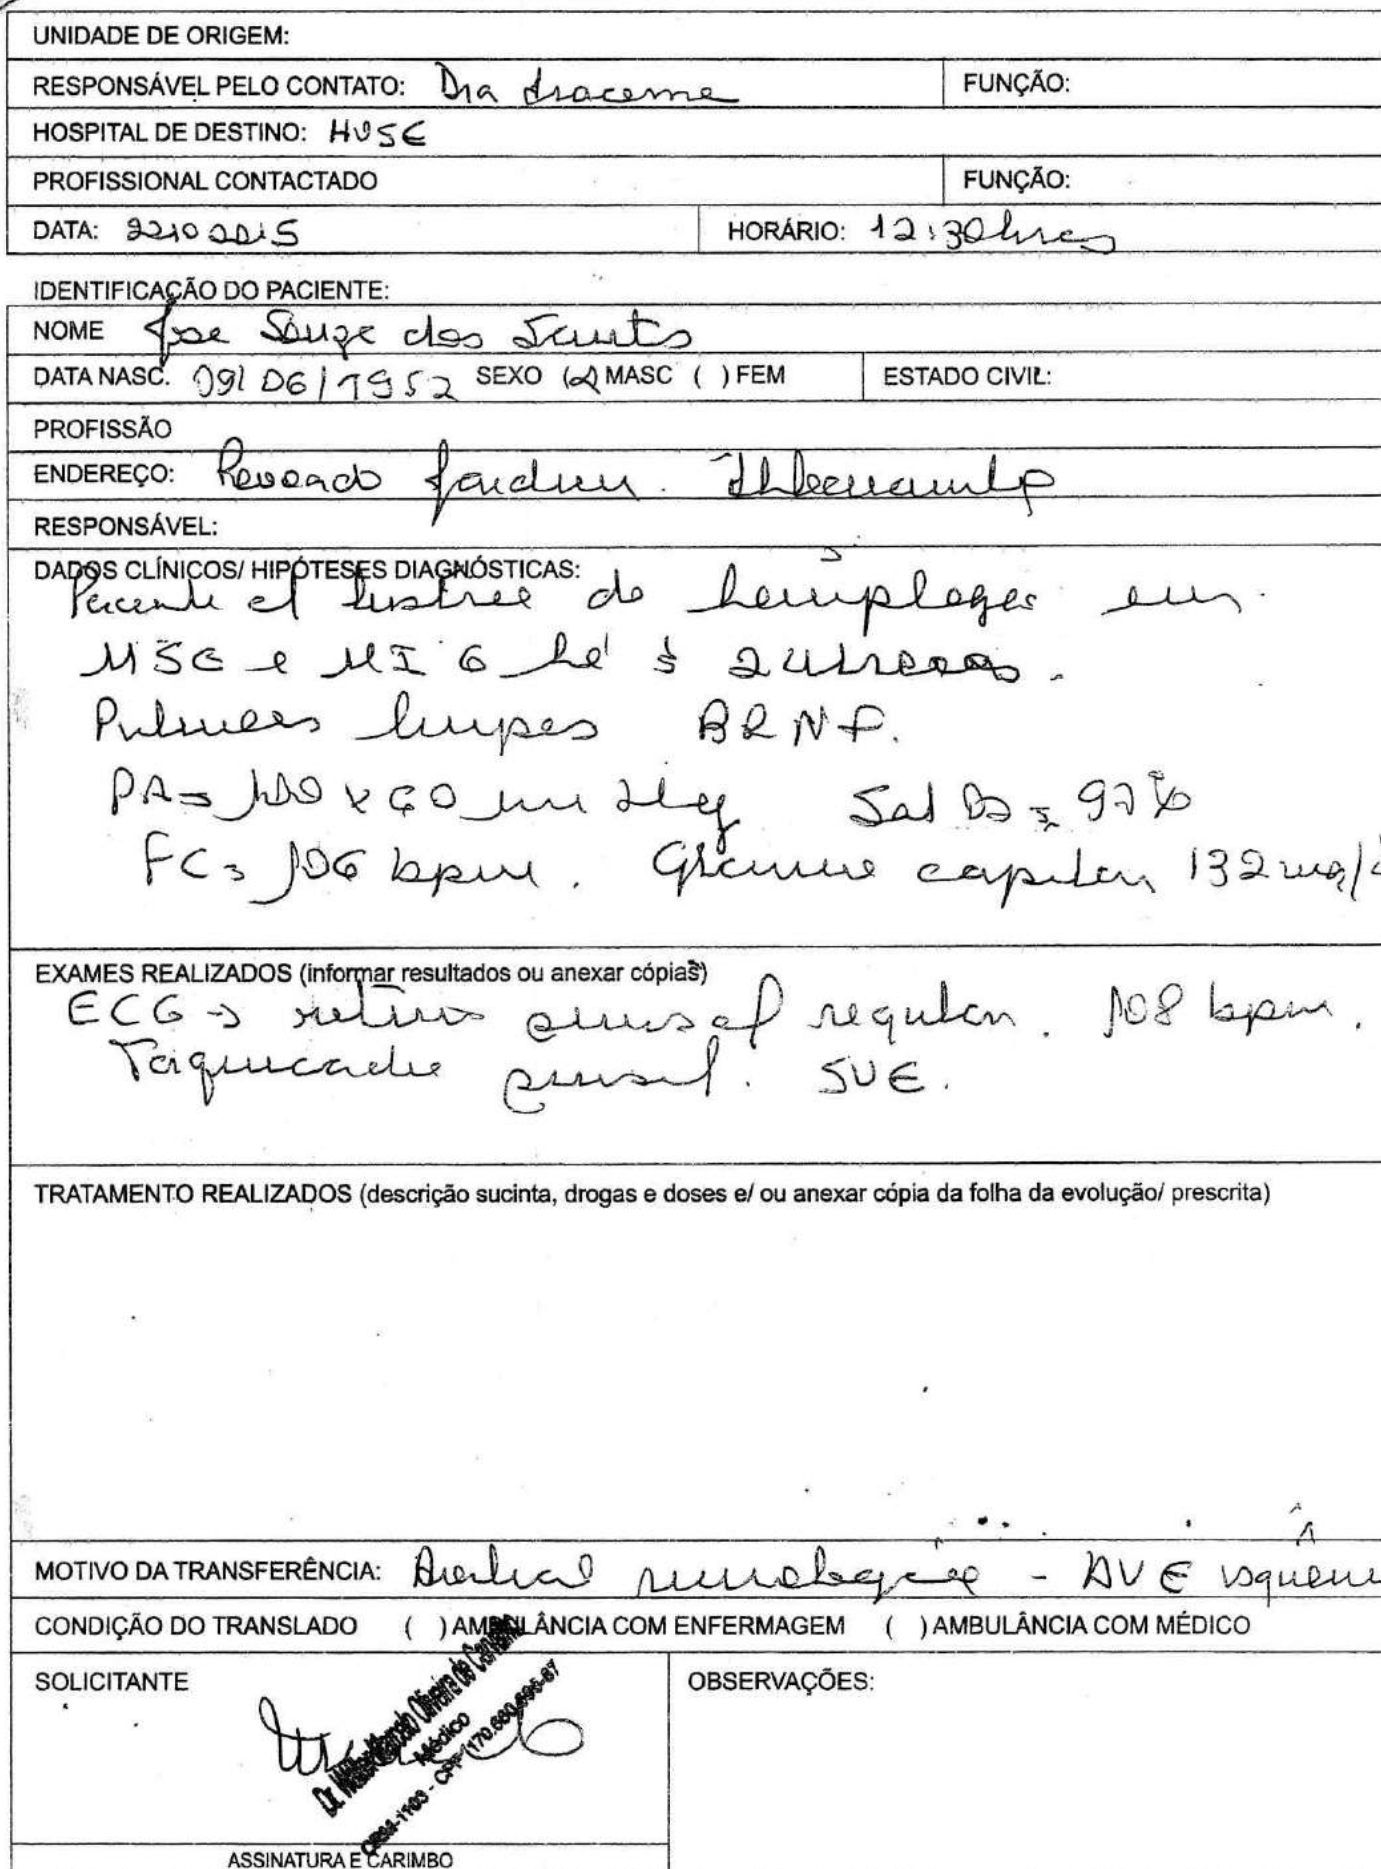 UNIDADE DE ORIGEM:
RESPONSÁVEL PELO CONTATO: Dra Iraceme FUNÇÃO:
HOSPITAL DE DESTINO: HUSE
PROFISSIONAL CONTACTADO FUNÇÃO:
DATA: 22102015 HORÁRIO: 12:30 hras
IDENTIFICAÇÃO DO PACIENTE:
NOME Jose Souza dos Santos
DATA NASC. 09/06/1952 SEXO (x) MASC ( ) FEM ESTADO CIVIL:
PROFISSÃO
ENDEREÇO: Povoado Jardim.
RESPONSÁVEL:
DADOS CLÍNICOS/ HIPÓTESES DIAGNÓSTICAS:
Paciente c/ de hemiplegia em
MSE e MIE há ±
Pulmões limpos BRNF.
PA= 100 x 60 mmHg Sat O2 = 97%
FC= 106 bpm. capilar 132 mg/d
EXAMES REALIZADOS (informar resultados ou anexar cópias)
ECG → ritmo sinusal regular. 108 bpm.
Taquicardia sinusal. SVE.
TRATAMENTO REALIZADOS (descrição sucinta, drogas e doses e/ ou anexar cópia da folha da evolução/ prescrita)
MOTIVO DA TRANSFERÊNCIA: neurologica - AVE isquêmi
CONDIÇÃO DO TRANSLADO ( ) AMBULÂNCIA COM ENFERMAGEM ( ) AMBULÂNCIA COM MÉDICO
SOLICITANTE OBSERVAÇÕES:
Médico
CRM-1103 - CPF
ASSINATURA E CARIMBO